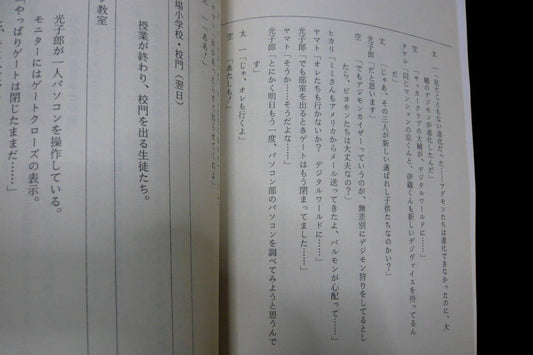 太　一「見たこともない進化だった……アグモンたちは進化できなかったのに、大
輔のデジモンが進化したんだ」
空　「サッカークラブの大輔が、デジタルワールドに……」
タケル「同じマンションの京くんと、伊織くんも新しいデジヴァイスを持ってるん
だ」
太　一「じゃあ、その三人が新しい選ばれし子供たちなのかい？」
光子郎「だと思います」
空　「でもデジモンカイザーっていうのが、無差別にデジモン狩りをしてるとし
たら、ピヨモンたちは大丈夫なの？」
ヒカリ「ミミさんもアメリカからメール送ってきたよ、パルモンが心配って……」
ヤマト「オレたちも行かないか？　デジタルワールドに……」
光子郎「でも部室を出るときゲートはもう閉まってました……」
ヤマト「そうか……そうだよな……」
光子郎「とにかく明日もう一度、パソコン部のパソコンを調べてみようと思うんで
す」
太　一「じゃ、オレも行くよ」
空　「あたしも！」
太　一「ああ！」
場小学校・校門（翌日）
授業が終わり、校門を出る生徒たち。
教室
光子郎が一人パソコンを操作している。
モニターにはゲートクローズの表示。
「やっぱりゲートは閉じたままだ……」